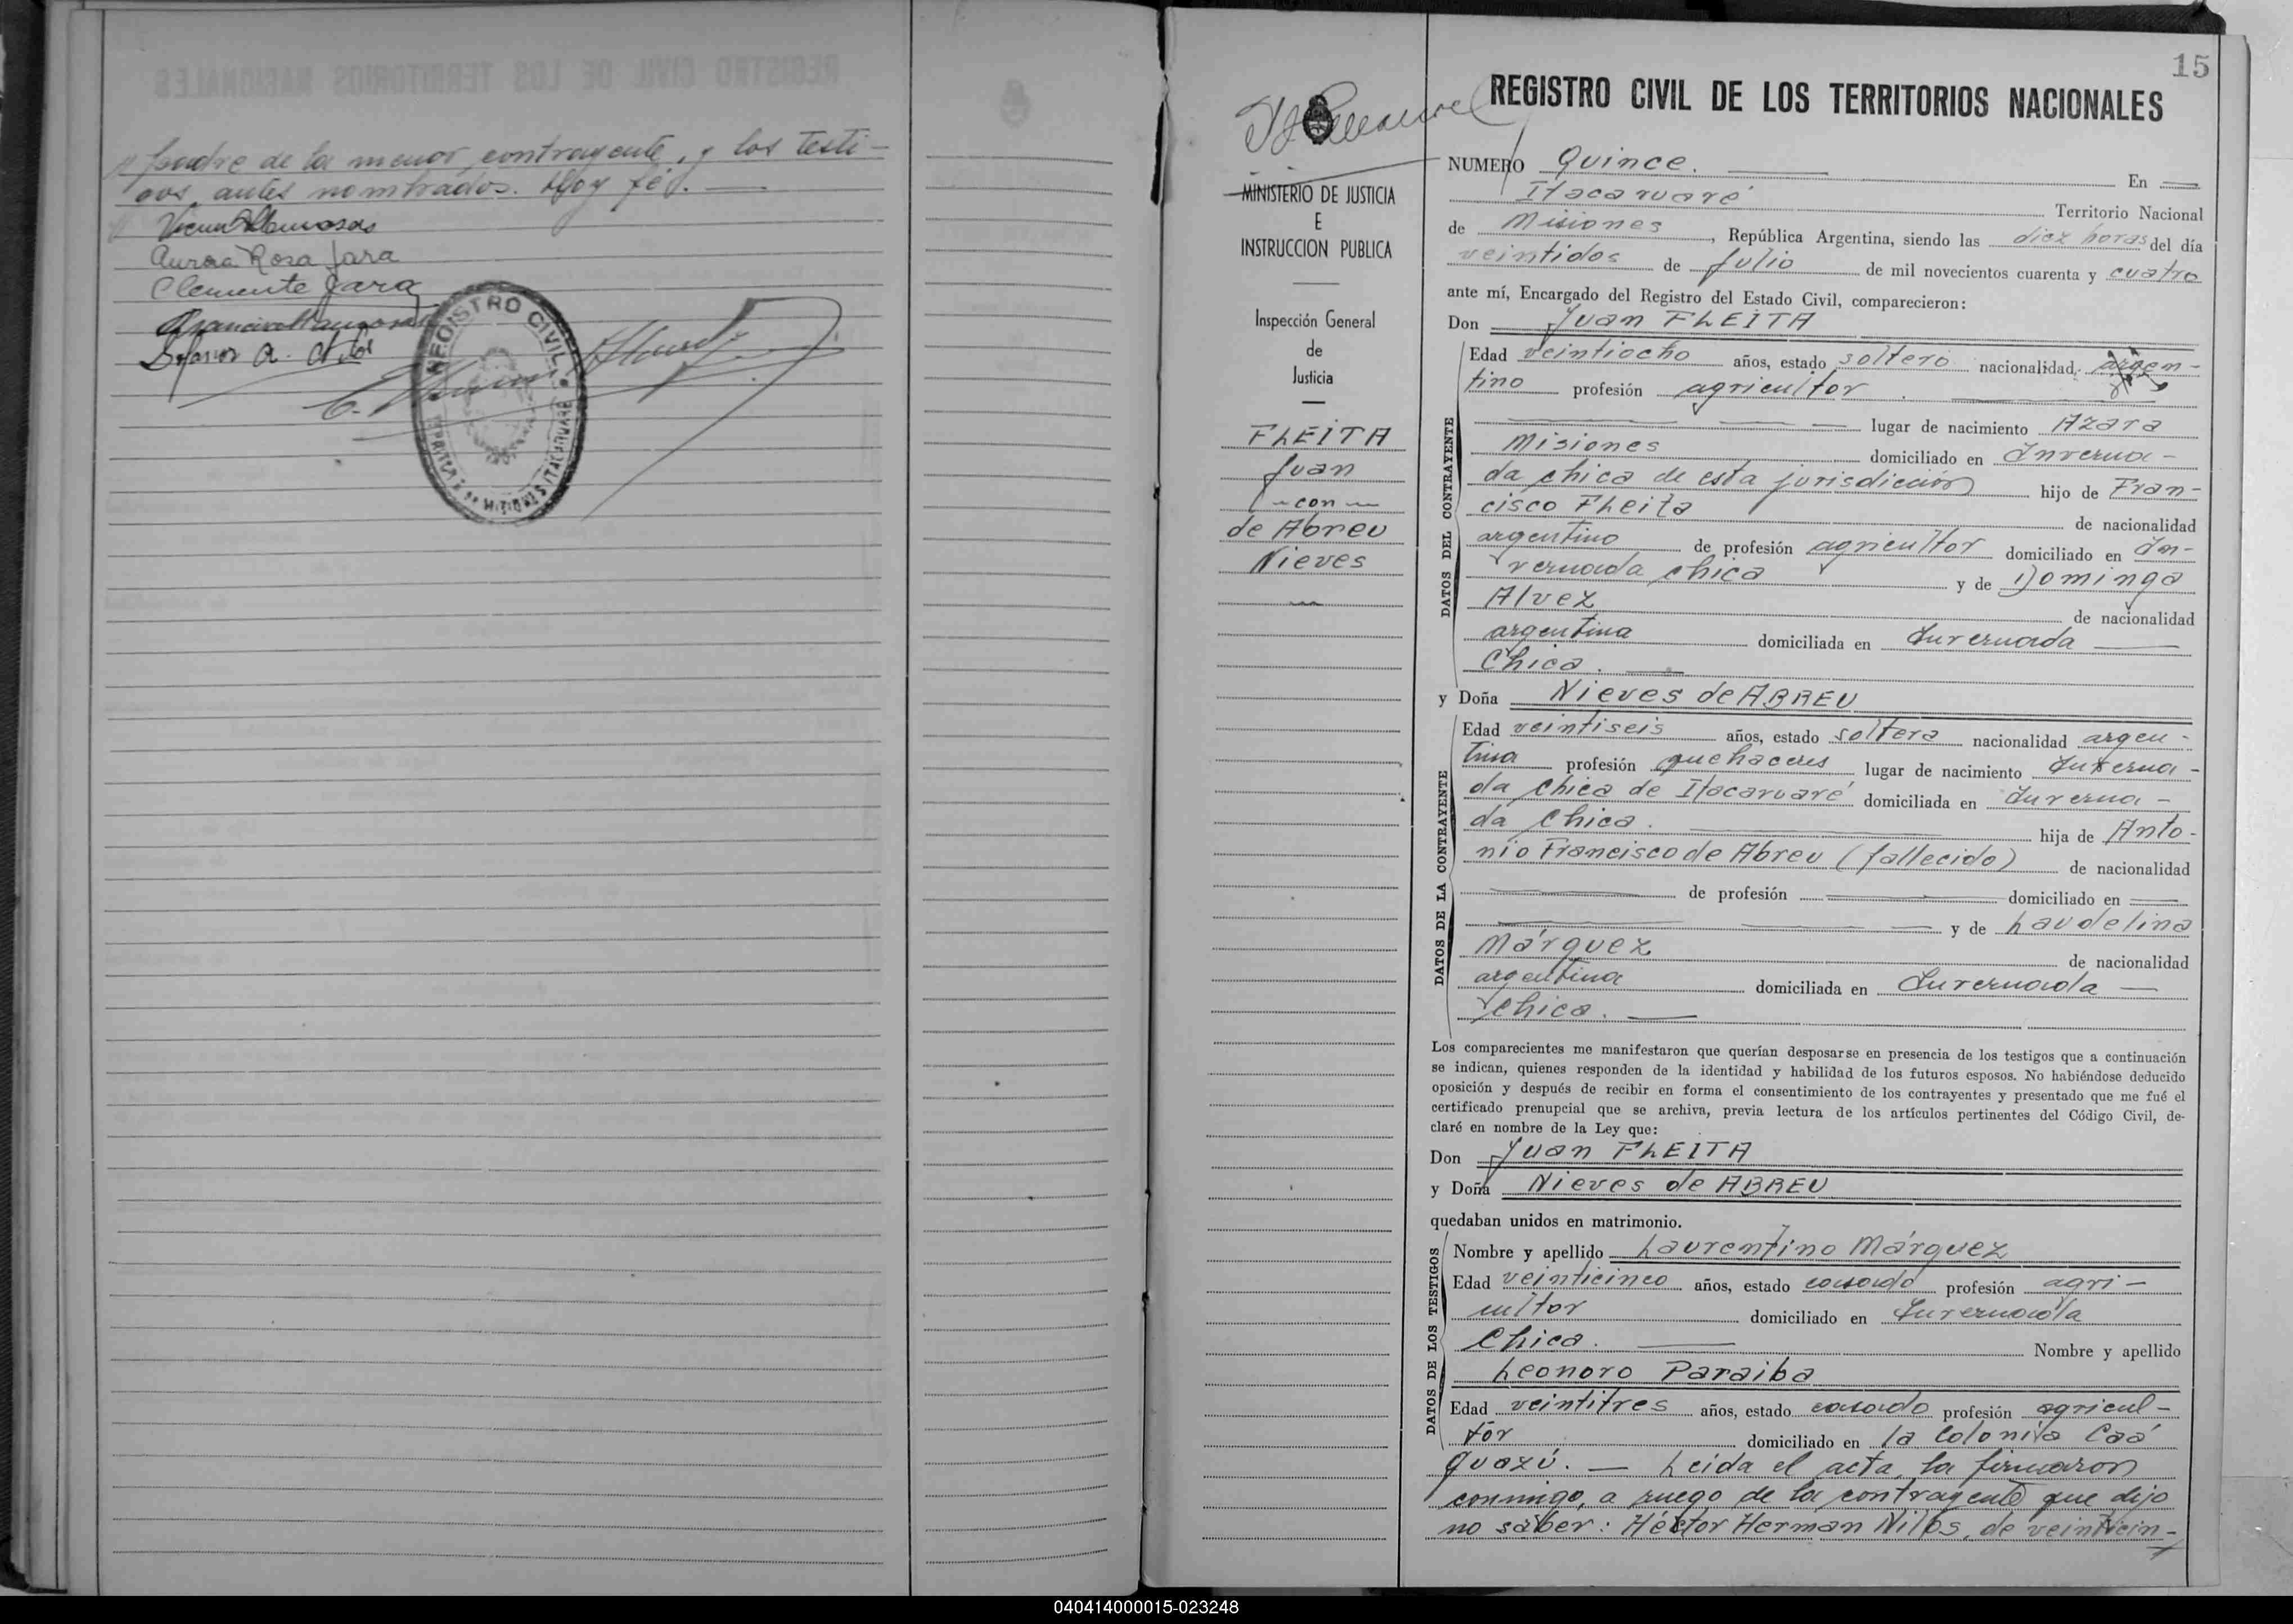 padre de la menor contrayente, y los testi-
gos, antes nombrados. Doy fé. —
Aurora Rosa Jara
Clemente Jara
REGISTRO CIVIL
15
REGISTRO CIVIL DE LOS TERRITORIOS NACIONALES
MINISTERIO DE JUSTICIA
E
INSTRUCCION PUBLICA
Inspección General
de
Justicia
FLEITA
Juan
con
de Abreu
Nieves
NUMERO Quince. En
Itacaruaré Territorio Nacional
de Misiones, República Argentina, siendo las diez horas del día
veintidos de Julio de mil novecientos cuarenta y cuatro
ante mí, Encargado del Registro del Estado Civil, comparecieron:
Don Juan FLEITA
DATOS DEL CONTRAYENTE
Edad veintiocho años, estado soltero nacionalidad argen-
tino profesión agricultor.
lugar de nacimiento Azara
Misiones domiciliado en Inverna-
da chica de esta jurisdicción hijo de Fran-
cisco Fleita de nacionalidad
argentino de profesión agricultor domiciliado en In-
vernada chica y de Dominga
Alvez de nacionalidad
argentina domiciliada en Invernada
Chica.
y Doña Nieves de ABREU
DATOS DE LA CONTRAYENTE
Edad veintiseis años, estado soltera nacionalidad argen-
tina profesión quehaceres lugar de nacimiento Inverna-
da Chica de Itacaruaré domiciliada en Inverna-
da Chica. hija de Anto-
nio Francisco de Abreu (fallecido) de nacionalidad
de profesión domiciliado en
y de Laudelina
Márquez de nacionalidad
argentina domiciliada en Invernada
Chica.
Los comparecientes me manifestaron que querían desposarse en presencia de los testigos que a continuación
se indican, quienes responden de la identidad y habilidad de los futuros esposos. No habiéndose deducido
oposición y después de recibir en forma el consentimiento de los contrayentes y presentado que me fué el
certificado prenupcial que se archiva, previa lectura de los artículos pertinentes del Código Civil, de-
claré en nombre de la Ley que:
Don Juan FLEITA
y Doña Nieves de ABREU
quedaban unidos en matrimonio.
DATOS DE LOS TESTIGOS
Nombre y apellido Laurentino Márquez
Edad veinticinco años, estado casado profesión agri-
cultor domiciliado en Invernada
Chica. Nombre y apellido
Leonoro Paraiba
Edad veintitres años, estado casado profesión agricul-
tor domiciliado en la Colonia Caá
Guazú. — Leida el acta, la firmaron
conmigo, a ruego de la contrayente que dijo
no saber: Héctor Herman Nilos, de veinticin-
040414000015-023248